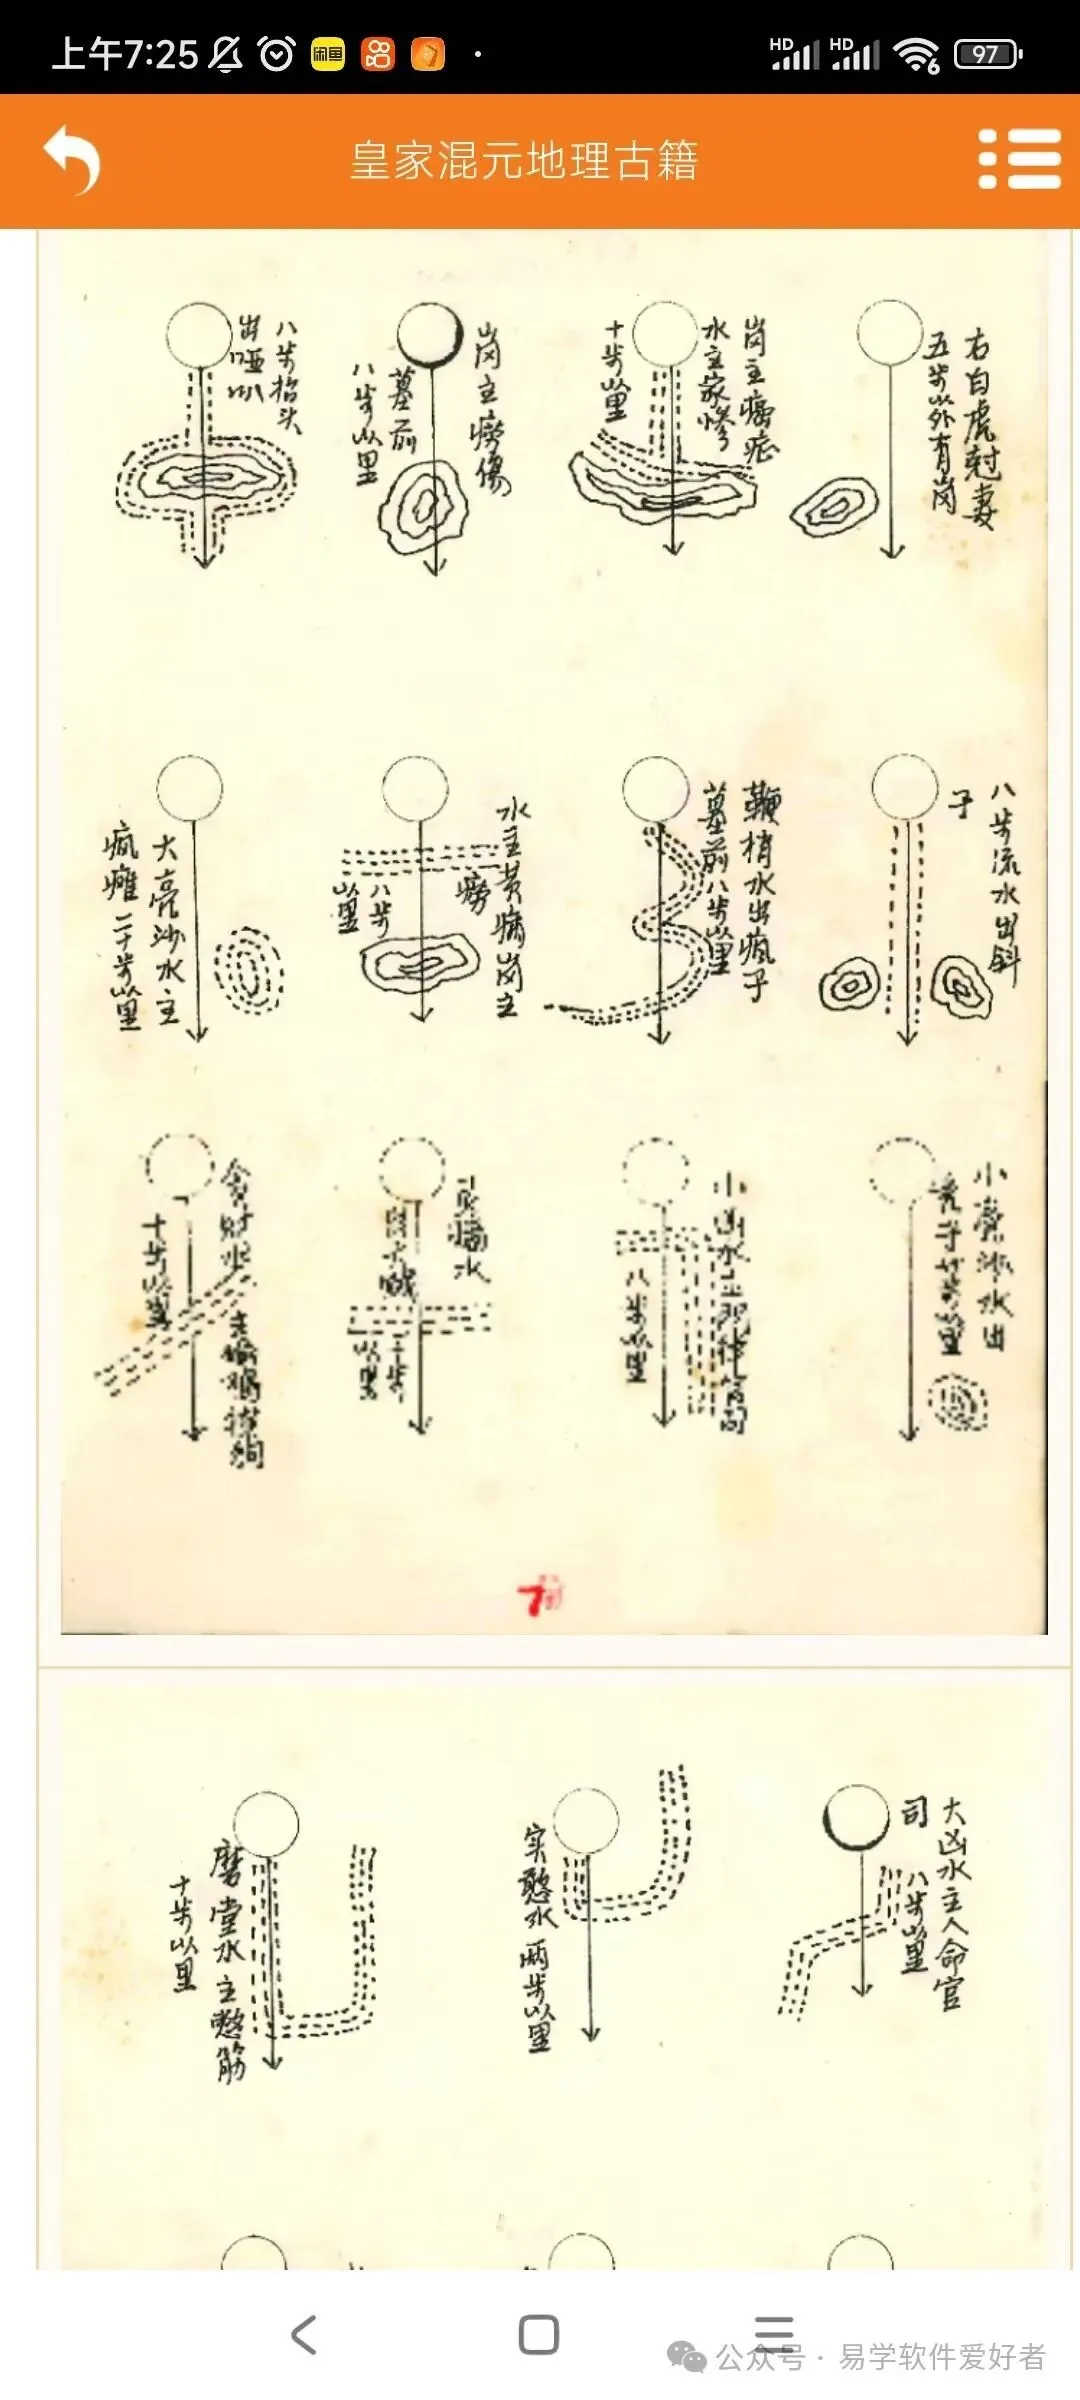 上午7:25
闲鱼
HD
HD
6
97
皇家混元地理古籍
右白虎尅妻
五步以外有岗
岗主癌症
水主家惨
十步以里
岗主痨傷
墓前
八步以里
八步抬头
出哑叭
八步流水出斜
子
鞭梢水出疯子
墓前八步以里
水主黄病岗主
痨
八步
以里
大亮沙水主
疯瘫二十步以里
小亮沙水出
小凶水主
八步以里
水
十步
以里
贪财水
主偷鸡摸狗
十步以里
7
大凶水主人命官
司
八步以里
实憨水两步以里
磨堂水主憋筋
十步以里
公众号·易学软件爱好者